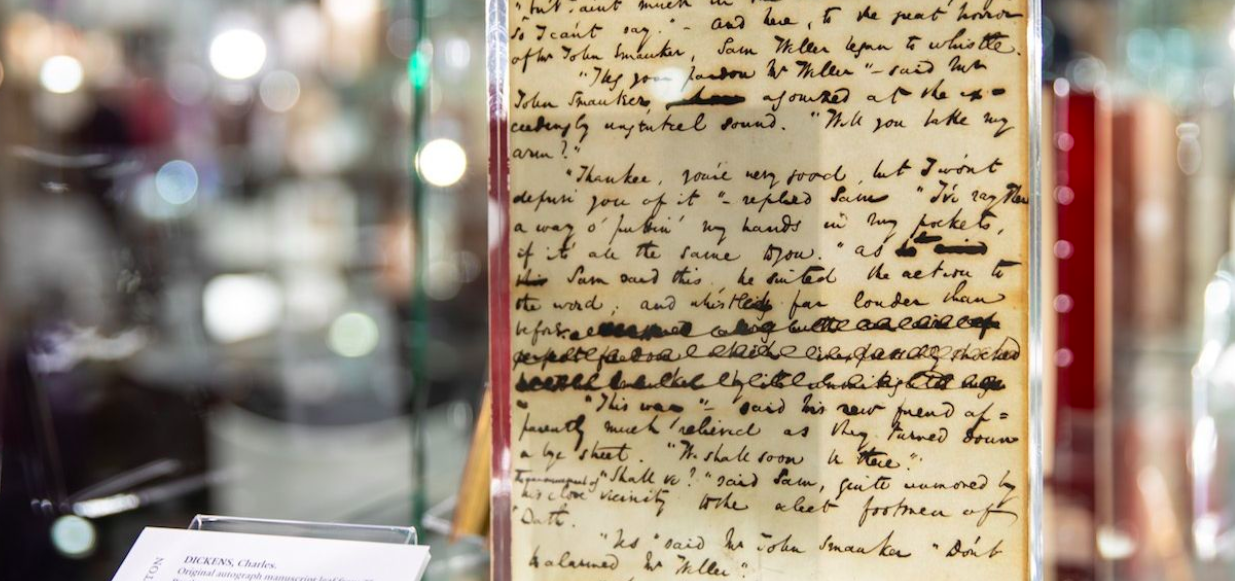 "but aint much in the
so I can't say." – and here, to the great horror
of Mr John Smauker, Sam Weller began to whistle.
pardon Mr Weller" – said Mr
John Smauker, agonized at the ex=
ceedingly ungenteel sound. "Will you take my
arm?"
"Thankee, you're very good, but I won't
deprive you of it" – replied Sam "I've rayther
a way o' puttin' my hands in my pockets,
if it's all the same to you." as
Sam said this, he suited the action to
the word, and whistled far louder than
before.
"This way" – said his new friend ap=
parently much relieved as they turned down
a bye street. "We shall soon be there."
"Shall we?" said Sam, quite unmoved by
his close vicinity to the select footmen of
Bath.
"Yes" said Mr John Smauker "Don't
be alarmed Mr Weller."
DICKENS, Charles.
Original autograph manuscript leaf from
NOT